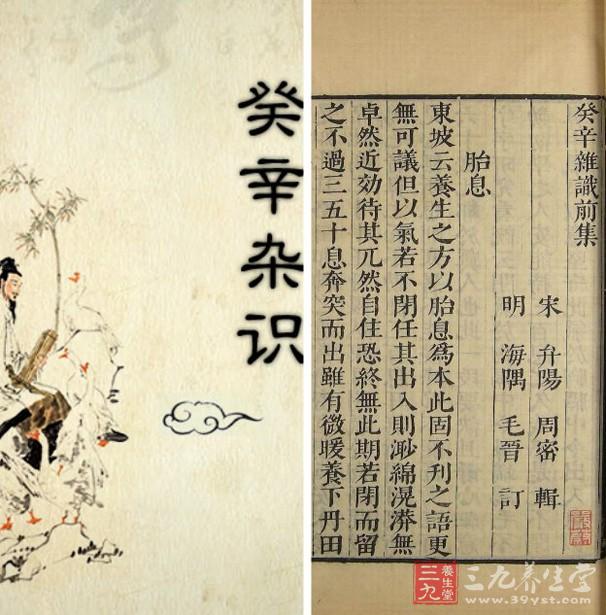 癸辛杂识
癸辛雜識前集
宋 弁陽 周密 輯
明 海隅 毛晉 訂
胎息
東坡云養生之方以胎息爲本此固不刋之語更
無可議但以氣若不閉任其出入則渺綿滉漭無
卓然近効待其兀然自住恐終無此期若閉而留
之不過三五十息奔突而出雖有微暖養下丹田
三九
養生堂
三九养生堂
www.39yst.com